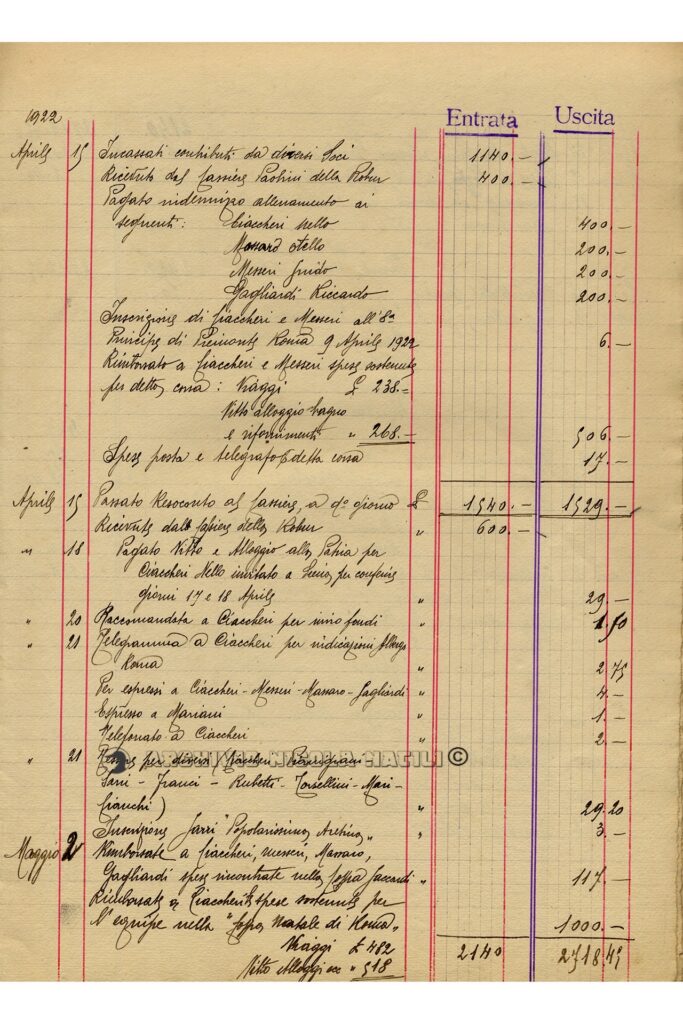 1922 Entrata Uscita
Aprile 15 Incassati contributi da diversi Soci 1140.-
Ricevute dal Cassiere Paolini della Robur 400.-
Pagato indennizzo allenamento ai
seguenti: Ciaccheri Nello 400.-
Massaro Otello 200.-
Messeri Guido 200.-
Gagliardi Riccardo 200.-
Inscrizione di Ciaccheri e Messeri all'8ª
Principe di Piemonte Roma 9 Aprile 1922 6.-
Rimborsato a Ciaccheri e Messeri spese sostenute
per detta corsa: Viaggi £ 238.=
Vitto alloggio bagno
e rifornimenti " 268.- 506.-
Spese posta e telegrafo detta corsa 17.-
Aprile 15 Passato Resoconto al Cassiere, a d° giorno £ 1540.- 1529.-
Ricevute dal Cassiere della Robur " 600.-
" 18 Pagato Vitto e Alloggio alla Patria per
Ciaccheri Nello invitato a Siena per conferire
giorni 17 e 18 Aprile " 29.-
" 20 Raccomandata a Ciaccheri per invio fondi " 1.50
" 21 Telegramma a Ciaccheri per indicazioni Albergo
Roma " 2.75
Per espressi a Ciaccheri-Messeri-Massaro-Gagliardi " 4.-
Espresso a Mariani " 1.-
Telefonato a Ciaccheri " 2.-
" 21 Tessere per diversi
ARCHIVIO NICOLA NATILI ©
Sani - Franci - Rubetti - Corsellini - Mari-
Bianchi) " 29.20
Inscrizione "Popolarissima" " 3.-
Maggio 2 Rimborsate a Ciaccheri, Messeri, Massaro,
Gagliardi spese incontrate nella Coppa " 117.-
Rimborsate a Ciaccheri spese sostenute per
l'equipe nella "Coppa Natale di Roma" 1000.-
Viaggi £ 482
Vitto Alloggi ecc " 518 2140 2718.45